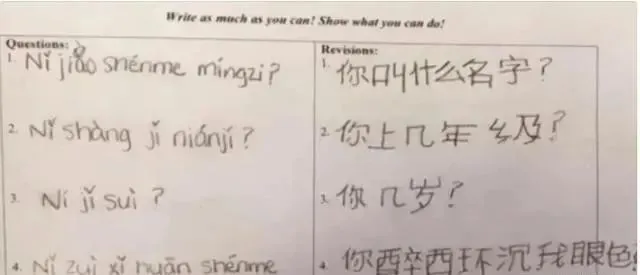 Write as much as you can! Show what you can do!
Questions:
1. Nǐ jiǎo shénme míngzi?
2. Nǐ shàng jǐ niánjí?
3. Ní jǐ suì?
4. Nǐ zuì xǐ huān shénme
Revisions:
1. 你叫什么名字?
2. 你上几年级?
3. 你几岁?
4. 你醉西环沉我眼色